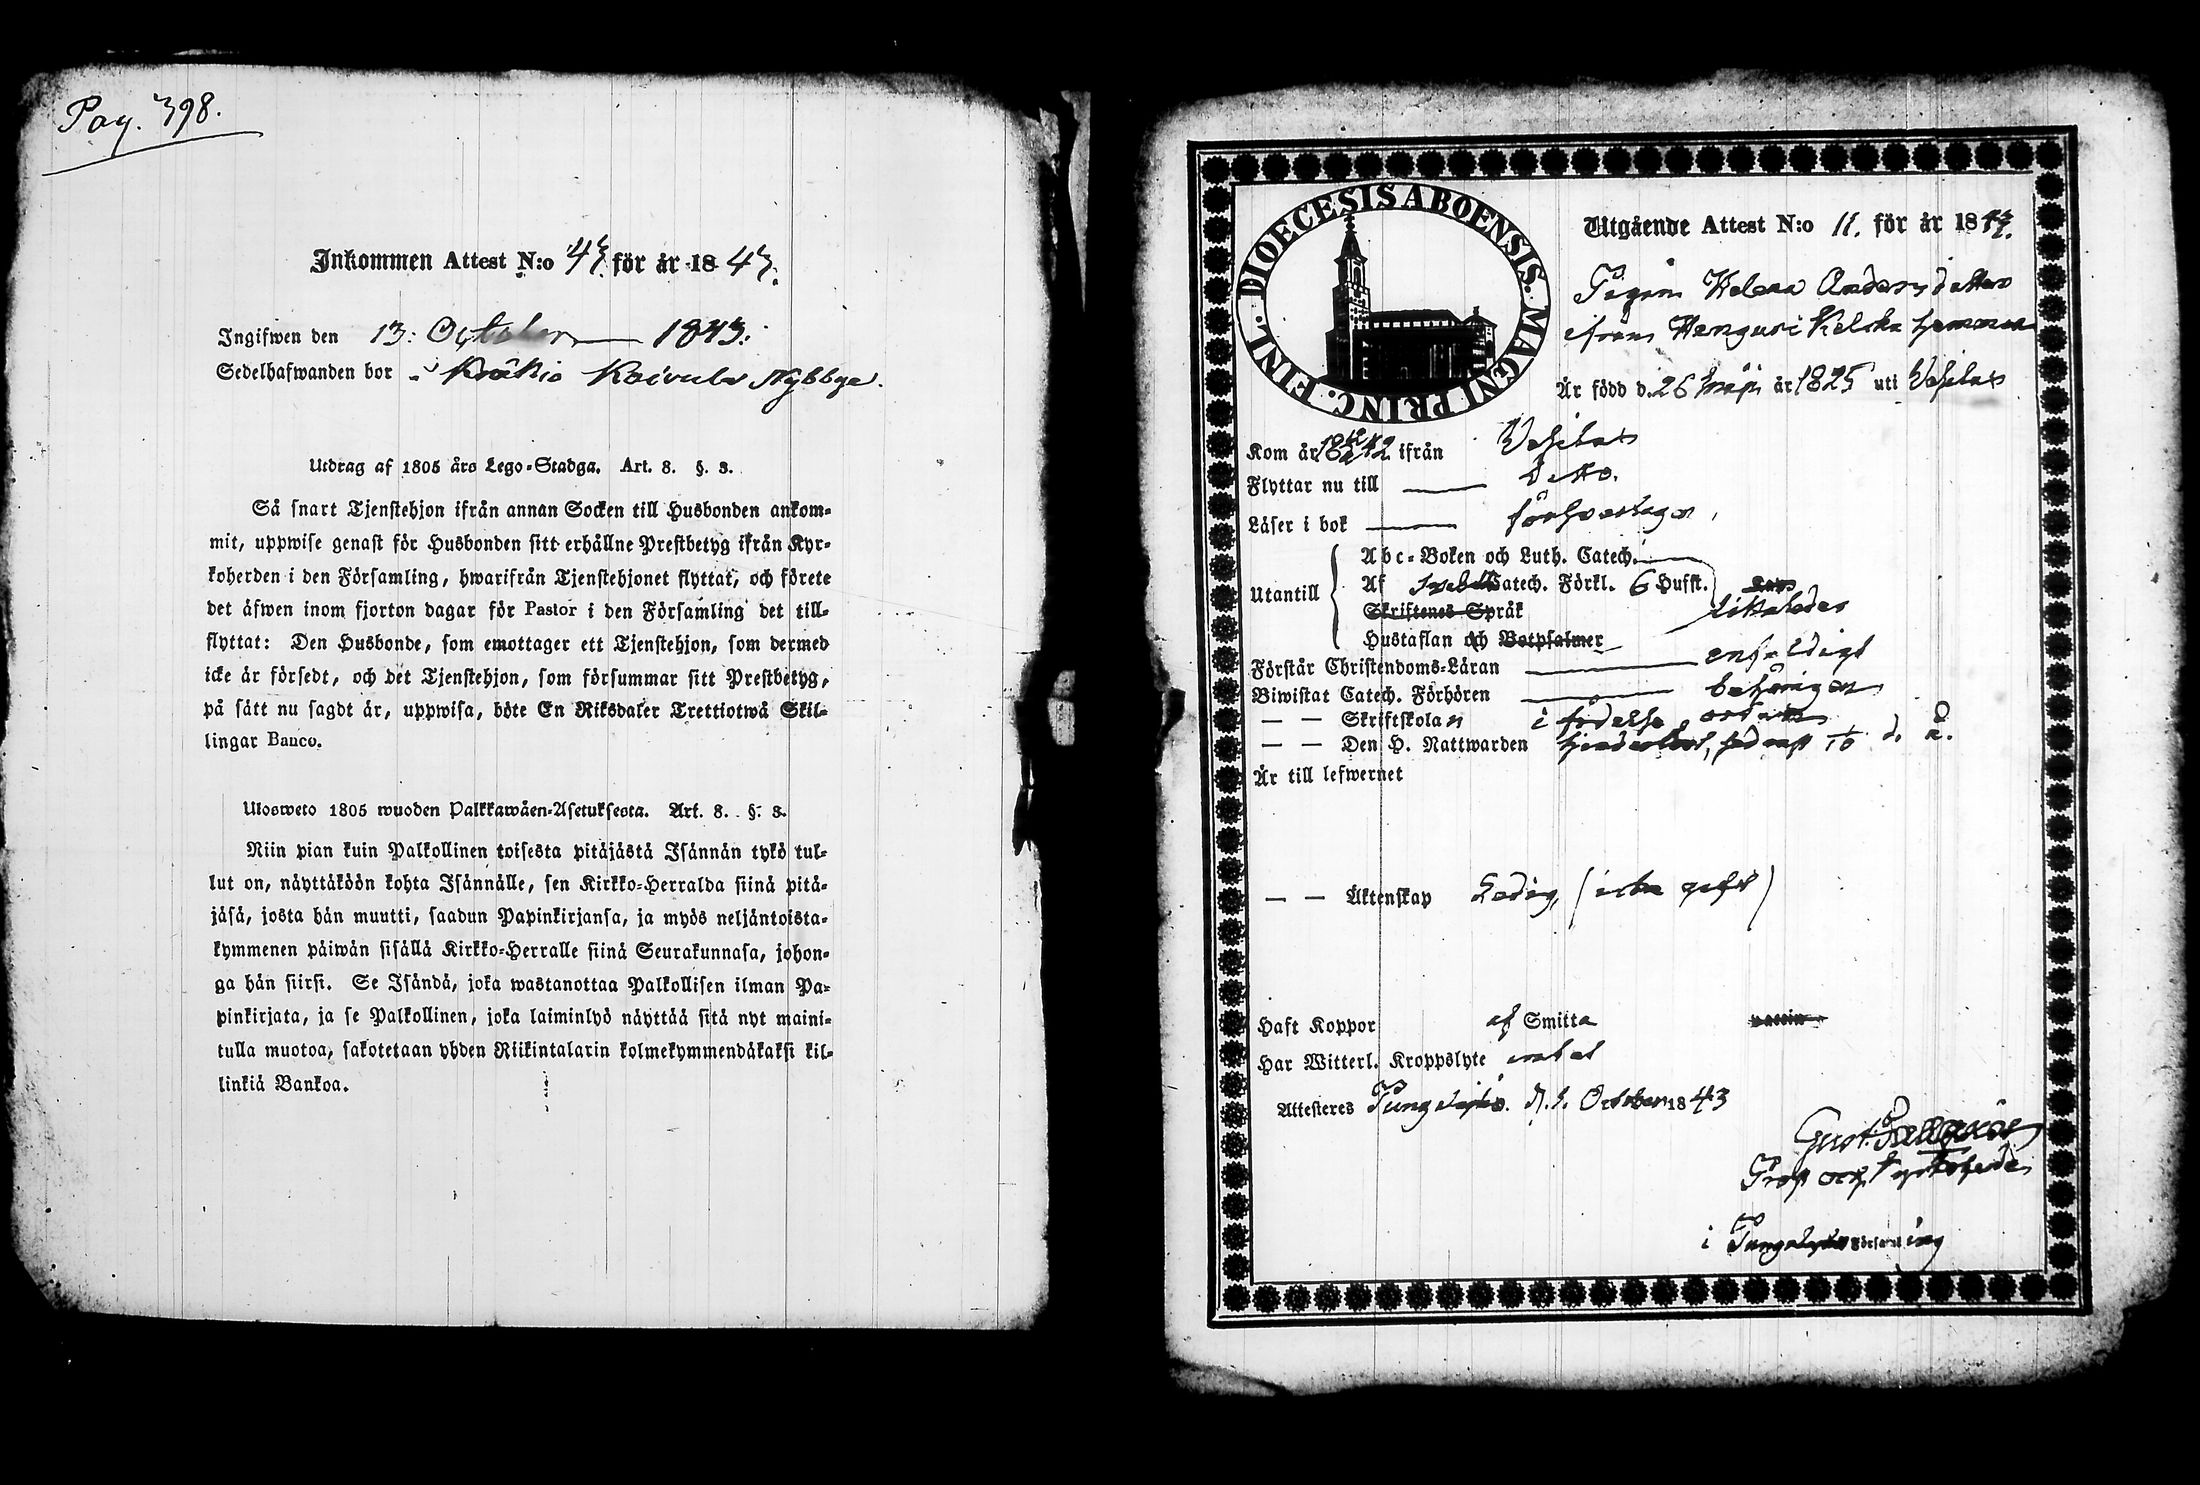 Pag. 398.
Inkommen Attest N:o 43. för år 1843.
Ingifwen den 13: October 1843.
Sedelhafwanden bor i Kräkiö Koivula Nybbye.
Utdrag af 1805 års Lego-Stadga. Art. 8. §. 3.
Så snart Tjenstehjon ifrån annan Socken till Husbonden ankom-
mit, uppwise genast för Husbonden sitt erhållne Prestbetyg ifrån Kyr-
koherden i den Församling, hwarifrån Tjenstehjonet flyttat, och förete
det äfwen inom fjorton dagar för Pastor i den Församling det till-
flyttat: Den Husbonde, som emottager ett Tjenstehjon, som dermed
icke är försedt, och det Tjenstehjon, som försummar sitt Prestbetyg,
på sätt nu sagdt är, uppwisa, böte En Riksdaler Trettiotwå Skil-
lingar Banco.
Ulosweto 1805 wuoden Palkkawäen-Asetuksesta. Art. 8. §. 3.
Niin pian kuin Palkollinen toisesta pitäjästä Isännän tykö tul-
lut on, näyttäköön kohta Isännälle, sen Kirkko-Herralda siinä pitä-
jäsä, josta hän muutti, saadun Papinkirjansa, ja myös neljäntoista-
kymmenen päiwän sisällä Kirkko-Herralle siinä Seurakunnasa, johon-
ga hän siirsi. Se Isändä, joka wastanottaa Palkollisen ilman Pa-
pinkirjata, ja se Palkollinen, joka laiminlyö näyttää sitä nyt maini-
tulla muotoa, sakotetaan yhden Riikintalarin kolmekymmendäkaksi kil-
linkiä Bankoa.
DIOECESIS ABOENSIS. MAGNI PRINC. FINL.
Utgående Attest N:o 11. för år 1843.
Pigan Helena Andersdotter
ifrån Hemman
Är född d. 26 Maji år 1825 uti Vesilax
Kom år 1842 ifrån Vesilax
Flyttar nu till dito.
Läser i bok försvarligen,
Utantill
Abc-Boken och Luth. Catech.
Af Svebelii Catech. Förkl. 6 Hufst.
Skriftenes Språk
Hustaflan och Botpsalmer
Förstår Christendoms-Läran enfaldigt
Biwistat Catech. Förhören behörigen
— — Skriftskolan i födelse orten
— — Den H. Nattwarden hinderlöst, sednast d. å.
Är till lefwernet
— — Äktenskap Ledig, (icke gift)
Haft Koppor af Smitta vaccin
Har Witterl. Kroppslyte intet
Attesteres Tungelniko. d. 3. October 1843
Gust.
Prost och Kyrkoherde
i Tungelniko Församling